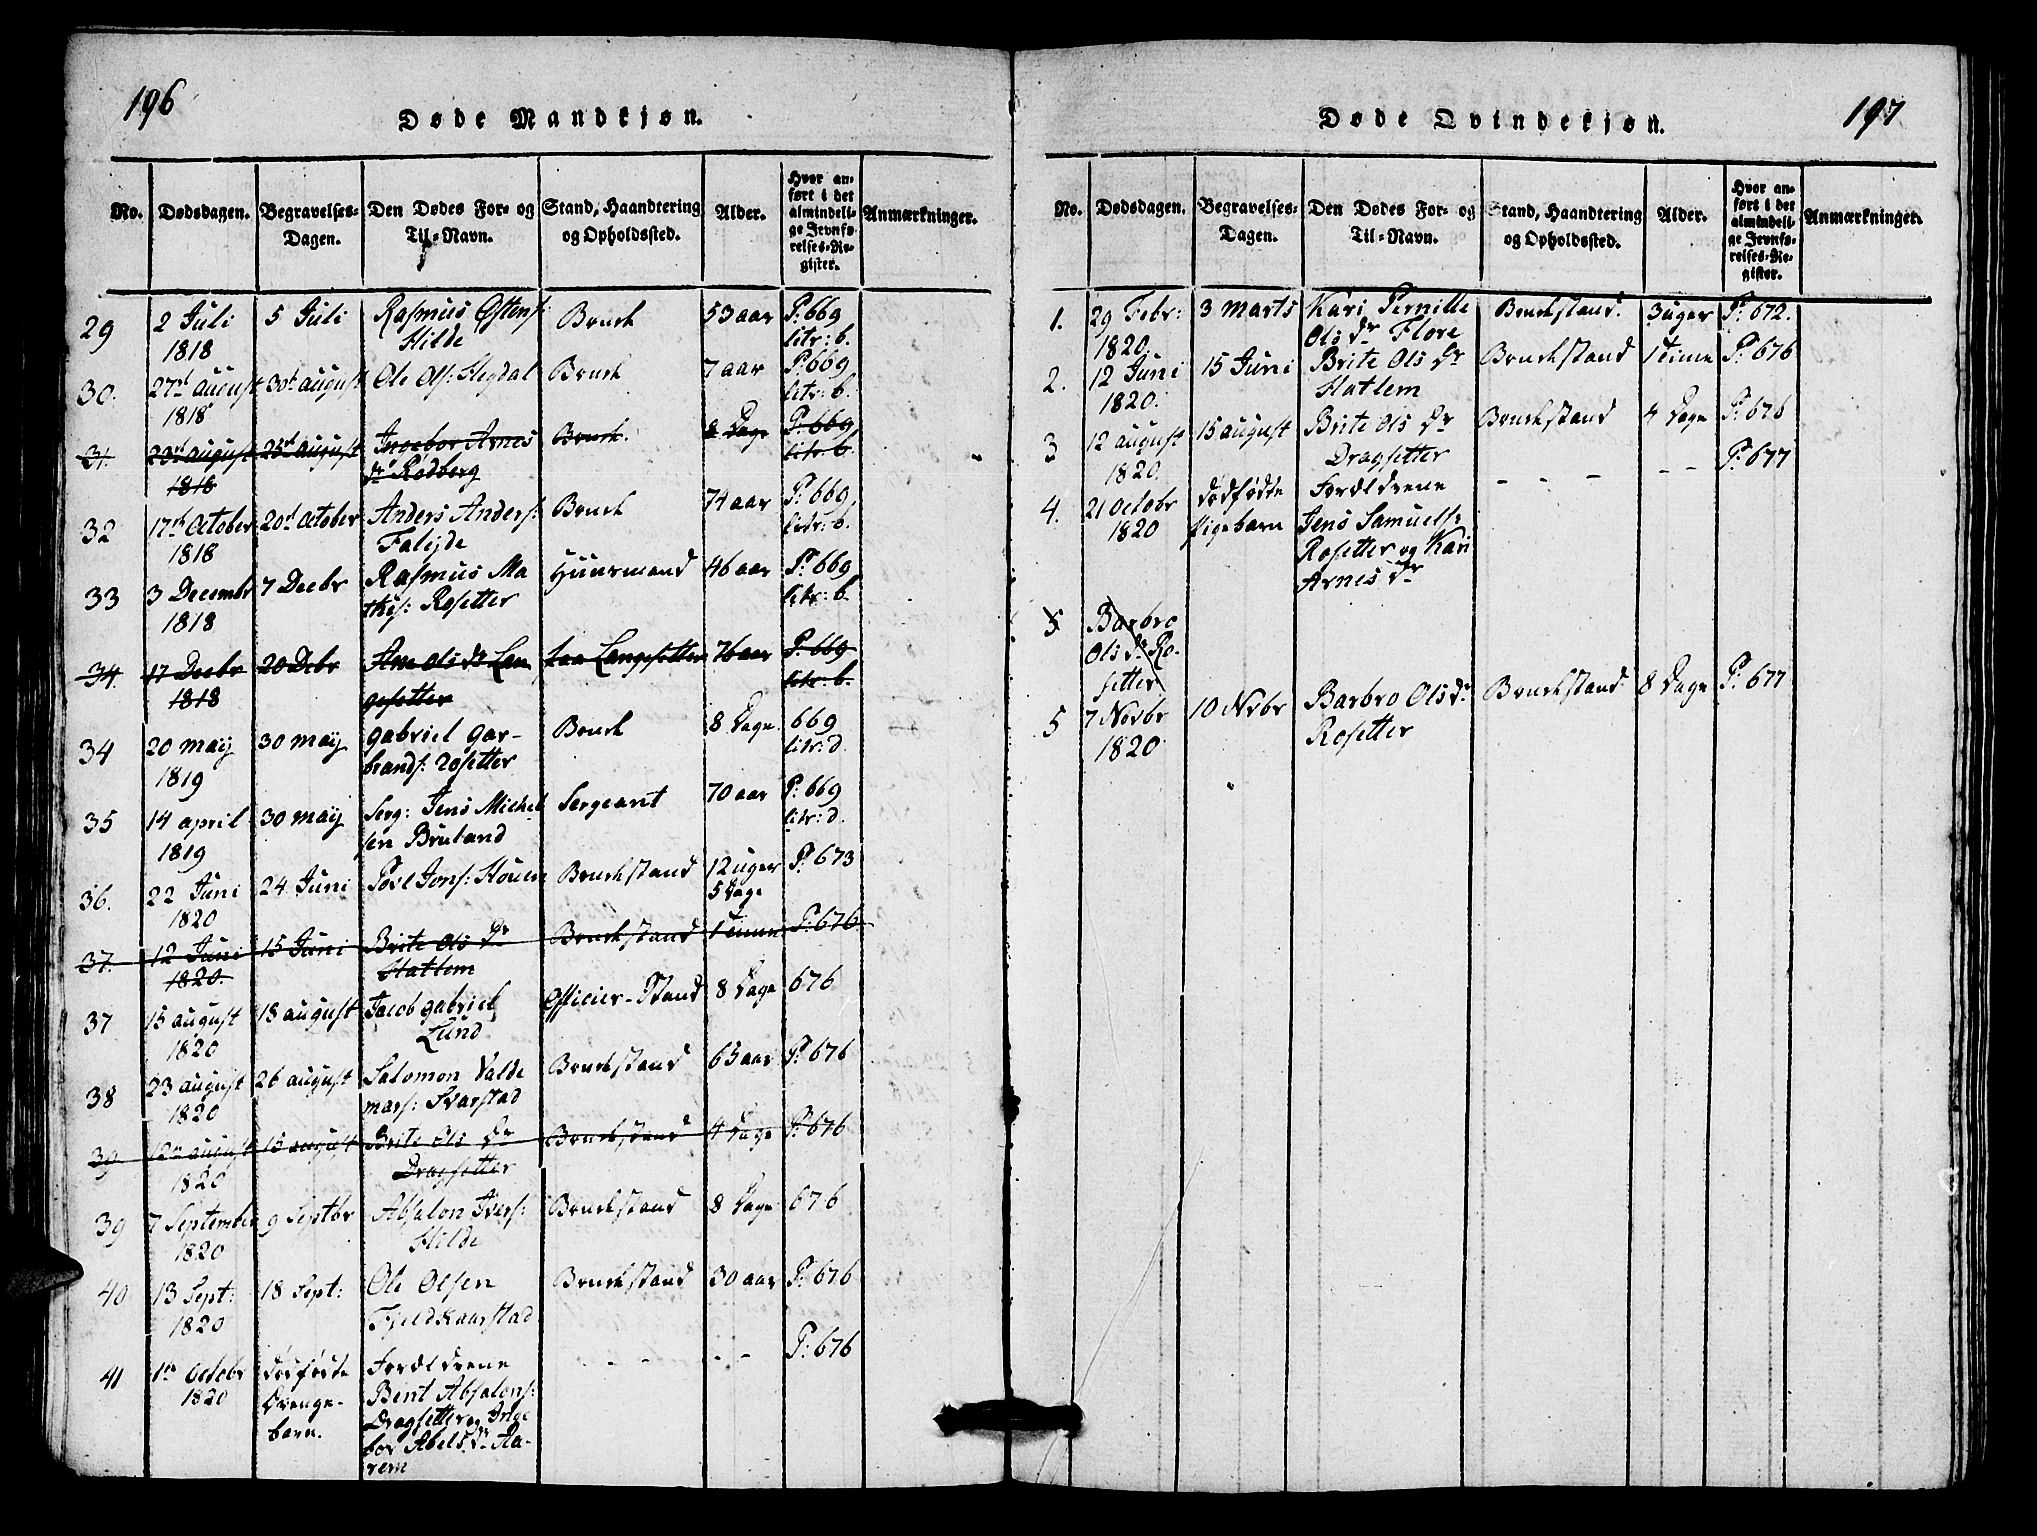 196
Døde Mandkjøn.
No. Dødsdagen. Begravelses-Dagen. Den Dødes For- og Til-Navn. Stand, Haandtering og Opholdssted. Alder. Hvor anført i det almindelige Jevnførelses-Register. Anmærkninger.
29 2 Juli 5 Juli Rasmus Østens: Bruch 53 aar P: 669
1818 Hilde litr: b.
30. 27d august 30d august Ole Ols: Hegdal Bruch 7 aar P: 669
1818 litr: b.
31. 23d august 25d august Ingebor Arnes Bruch. 2 Dage P: 669
1818 Dr Rødberg litr: b.
32 17d October 20d October Anders Anders: Bruch 74 aar P: 669
1818 Falijde litr: b.
33 3 Decembr 7 Decbr Rasmus Ma Huusmand 46 aar P: 669
1818 this: Rosetter litr: b.
34. 17 Decbr 20 Debr Ane Ols Dr Lan paa Langesetter 76 aar P: 669
1818 gesetter litr: b.
34 20 may 30 may Gabriel Gar- Bruch 8 Dage 669
1819 brands: Rosetter litr: d.
35 14 april 30 may Serg: Jens Michel Sergeant 70 aar P: 669
1819 sen Bruland litr: d.
36. 22 Juni 24 Juni Povl Jons: Houen Bruchstand 12 uger P: 673
1820 5 Dage
37. 12 Juni 15 Juni Brite Ols Dr Bruchstand 1 Time P: 676
1820. Hatlem
37 15 august 18 august Jacob Gabriel Officier-Stand 8 Dage 676
1820 Lund
38 23 august 26 august Salomon Valde Bruchstand 63 aar P: 676
1820 mars: Svarstad
39 12 august 15 august Brite Ols Dr Bruchstand 4 Dage P: 676
1820 Dragsetter
39 7 September 9 Septbr Absalon Ivers: Bruchstand 8 Dage 676
1820 Hilde
40 13 Sept: 18 Sept: Ole Olsen Bruchstand 30 aar P: 676
1820 Fjeldkaarstad
41 1 Octobr Dødfødte Forældrene - - - - - P: 676
1820 Drenge- Bent Absalons:
barn. Dragsetter og Inge
bor Abels Dr Aa-
rem
197
Døde Qvindekjøn.
No. Dødsdagen. Begravelses-Dagen. Den Dødes For- og Til-Navn. Stand, Haandtering og Opholdssted. Alder. Hvor anført i det almindelige Jevnførelses-Register. Anmærkninger.
1. 29 Febr: 3 Marts Kari Pernille Bruchstand. 3 uger P: 672.
1820 Ols Dr Flore
2. 12 Juni 15 Juni Brite Ols Dr Bruchstand 1 Time P: 676
1820. Hatlem
3 12 august 15 august Brite Ols Dr Bruchstand 4 Dage P: 676
1820. Dragsetter
4. 21 Octobr Dødfødte Forældrene - - - - - P: 677
1820 Pigebarn Jens Samuels:
Rosetter og Kari
Arnes Dr
5 Barbro
Ols Dr Ro-
setter
5 7 Novbr 10 Nvbr Barbro Ols Dr Bruchstand 8 Dage P: 677
1820 Rosetter